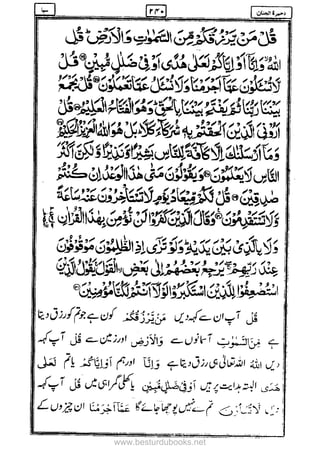 سبا ۲۴۰ ذخیرۃ الجنان
قُلْ مَنْ يَّرْزُقُكُمْ مِّنَ السَّمٰوٰتِ وَالْاَرْضِ قُلِ
اللّٰهُ وَاِنَّآ اَوْ اِيَّاكُمْ لَعَلٰى هُدًى اَوْ فِيْ ضَلٰلٍ مُّبِيْنٍ قُلْ
لَّا تُسْـَٔلُوْنَ عَمَّآ اَجْرَمْنَا وَلَا نُسْـَٔلُ عَمَّا تَعْمَلُوْنَ قُلْ يَجْمَعُ
بَيْنَنَا رَبُّنَا ثُمَّ يَفْتَحُ بَيْنَنَا بِالْحَقِّ وَهُوَ الْفَتَّاحُ الْعَلِيْمُ قُلْ
اَرُوْنِيَ الَّذِيْنَ اَلْحَقْتُمْ بِهٖ شُرَكَآءَ كَلَّا بَلْ هُوَ اللّٰهُ الْعَزِيْزُ الْحَكِيْمُ
وَمَآ اَرْسَلْنٰكَ اِلَّا كَآفَّةً لِّلنَّاسِ بَشِيْرًا وَّنَذِيْرًا وَّلٰكِنَّ اَكْثَرَ
النَّاسِ لَا يَعْلَمُوْنَ وَيَقُوْلُوْنَ مَتٰى هٰذَا الْوَعْدُ اِنْ كُنْتُمْ
صٰدِقِيْنَ قُلْ لَّكُمْ مِّيْعَادُ يَوْمٍ لَّا تَسْتَاْخِرُوْنَ عَنْهُ سَاعَةً
وَّلَا تَسْتَقْدِمُوْنَ وَقَالَ الَّذِيْنَ كَفَرُوْا لَنْ نُّؤْمِنَ بِهٰذَا الْقُرْاٰنِ
وَلَا بِالَّذِيْ بَيْنَ يَدَيْهِ وَلَوْ تَرٰٓى اِذِ الظّٰلِمُوْنَ مَوْقُوْفُوْنَ
عِنْدَ رَبِّهِمْ يَرْجِعُ بَعْضُهُمْ اِلٰى بَعْضِ ِۨالْقَوْلَ يَقُوْلُ الَّذِيْنَ
اسْتُضْعِفُوْا لِلَّذِيْنَ اسْتَكْبَرُوْا لَوْلَآ اَنْتُمْ لَكُنَّا مُؤْمِنِيْنَ
قُلْ آپ ان سے کہہ دیں مَنْ يَّرْزُقُكُمْ کون ہے جو تم کو رزق دیتا
ہے مِّنَ السَّمٰوٰتِ آسمانوں سے وَالْاَرْضِ اور زمین سے قُلِ آپ کہہ
دیں اللّٰهُ اللہ تعالیٰ ہی رزق دیتا ہے وَاِنَّآ اور ہم اَوْ اِيَّاكُمْ یا تم لَعَلٰى
هُدًى البتہ ہدایت پر ہیں اَوْ فِيْ ضَلٰلٍ مُّبِيْنٍ یا کھلی گمراہی میں قُلْ آپ کہہ
دیں لَّا تُسْـَٔلُوْنَ تم سے نہیں پوچھا جائے گا عَمَّآ اَجْرَمْنَا ان چیزوں کے
www.besturdubooks.net